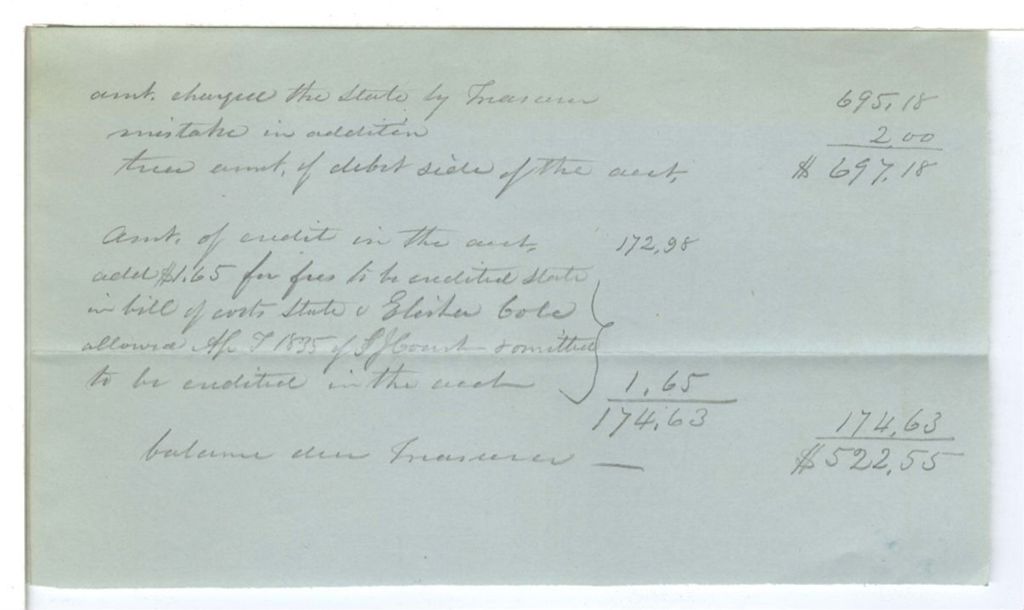 amt. charged the State by Treasurer 695,18
mistake in addition 2,00
true amt. of debit side of the acct. $ 697,18
Amt. of credit in the acct. 172,98
add $1.65 for fees to be credited State
in bill of costs State v Elisha Cole
allowed Ap T 1835 of S J Court & omitted
to be credited in the acct 1,65
174,63 174,63
balance due Treasurer — $522,55